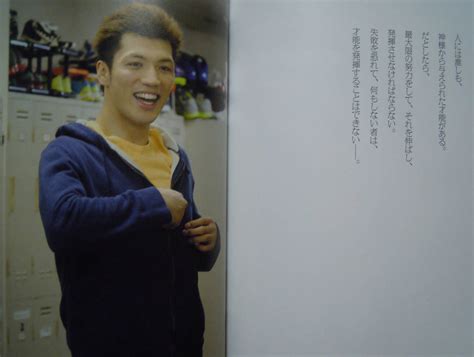 人には誰しも、
神様から与えられた才能がある。
だとしたら、
最大限の努力をして、それを伸ばし、
発揮させなければならない。
失敗を恐れて、何もしない者は、
才能を発揮することはできない──。